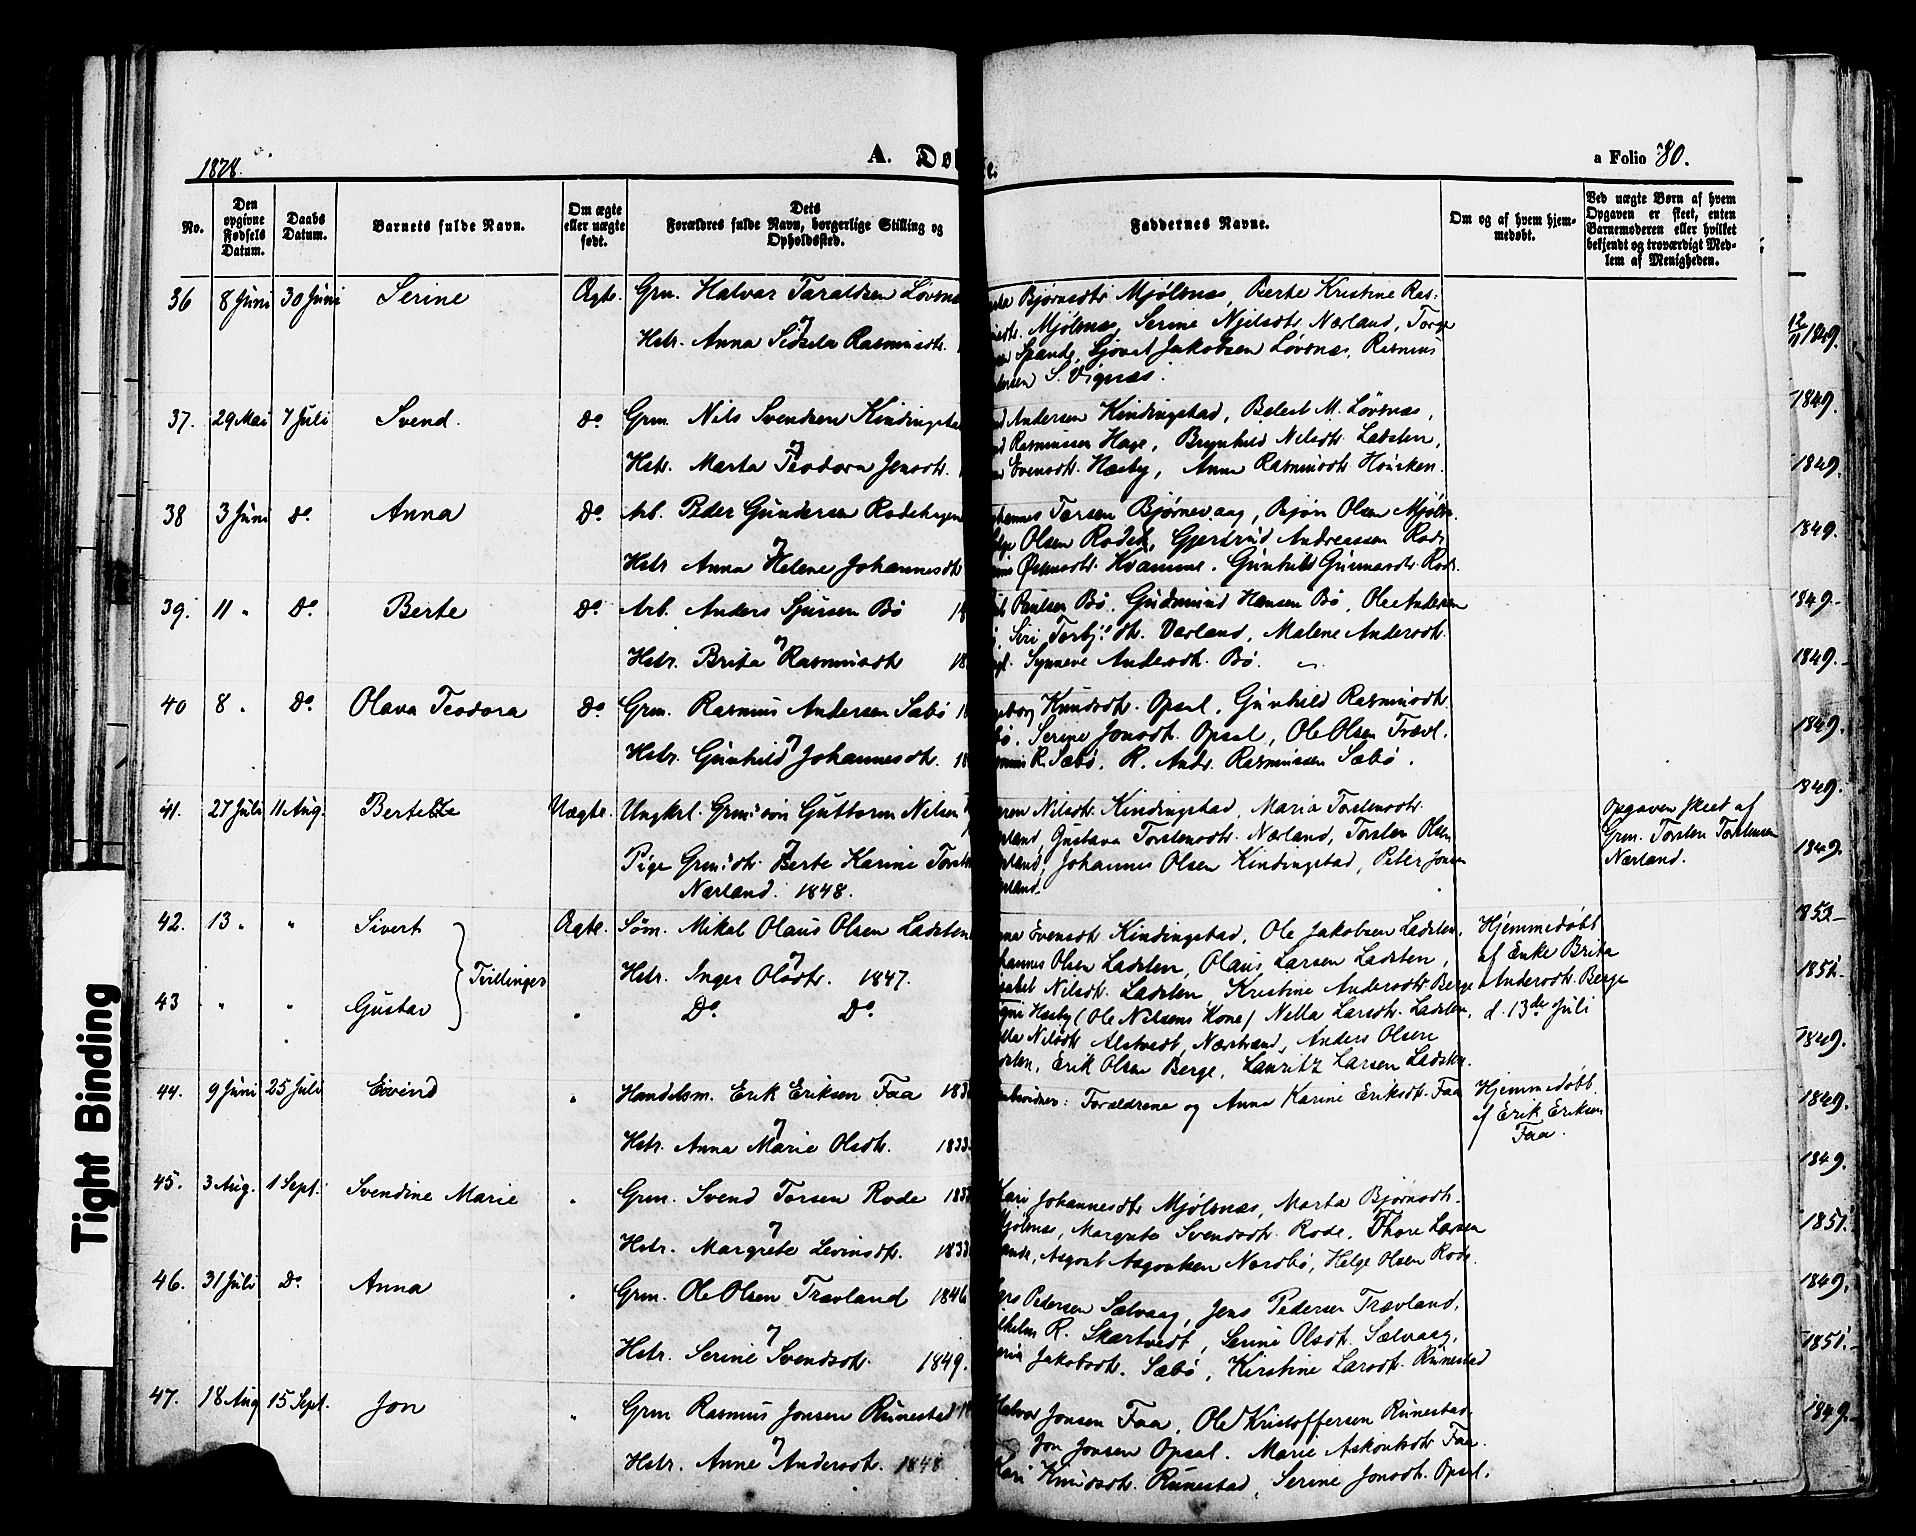 1878.
A.
a Folio 80.
No.
Den opgivne Fødsels Datum.
Daabs Datum.
Barnets fulde Navn.
Om ægte eller uægte født.
Dets Forældres fulde Navn, borgerlige Stilling og Opholdssted.
Faddernes Navne.
Om og af hvem hjemmedøbt.
Ved uægte Børn af hvem Opgaven er skeet, enten Barnemoderen eller hvilket bekjendt og troværdigt Medlem af Menigheden.
36 8 Juni 30 Juni Serine Ægte. Grm. Halvar Taraldsen Løvsnæs
Hstr. Anna Sidsela Rasmusdtr.
Bjørnsdtr Mjølsnæs, Berte Kristine Ras-
Mjølsnæs, Serine Njelsdtr. Nærland, Torge
Spande, Sjovat Jakobsen Løvsnæs, Rasmus
S. Vignæs.
37. 29 Mai 7 Juli Svend. Do. Grm. Nils Svendsen Kindingstad
Hstr. Marta Teodora Jensdtr.
Andersen Kindingstad, Balest M. Løvsnæs,
Rasmussen Hage, Brynhild Nilsdtr. Ladsten,
Evensdtr. Hæsby, Anna Rasmusdtr Housken.
38 3 Juni do. Anna Do. Arb. Peder Gundersen Rodehagen
Hstr Anna Helene Johannesdtr
Torsen Bjørnevaag, Bjørn Olsen Mjøls.
Olsen Rodek, Gjertrud Andreassen Rod.
Østensdtr. Kvamme. Gunhild Gunnarsdtr. Rode.
39. 11 " Do. Berte Do. Arb. Anders Sjursen Bø
Hstr. Brita Rasmusdtr
Paulsen Bø, Gudmund Hansen Bø, Ole Andersen
Siri Torbj: dtr. Varland, Malene Andersdtr.
Synneve Andersdtr. Bø.
40 8 " Do. Olava Teodora Do. Grm. Rasmus Andersen Sabø
Hstr. Gunhild Johannesdtr.
Knudsdtr. Opsal, Gunhild Rasmusdtr.
Serine Jonsdtr. Opsal, Ole Olsen Trævl.
R. Sæbø. R. Andr. Rasmussen Sæbø.
41. 27 Juli 11 Aug. Uægte. Ungkrl. Grm: søn Guttorm Nilsen
Pige Grm: dtr. Berte Karine Torst
Nærland. 1848.
Nilsdtr. Kindingstad, Maria Torstensdtr.
Gustava Torstensdtr. Nærland, Torsten Olsen
Johannes Olsen Kindingstad, Peter Jonsen
Opgaven skeet af
Grm. Torsten Torstensen
Nærland.
42. 13 " " Sivert Ægte. Søm. Mikal Olaus Olsen Ladsten
Tvillinger
Hstr. Inger Olsdtr. 1847.
Evensdtr Kindingstad, Ole Jakobsen Ladsten,
Olsen Ladsten, Olaus Larsen Ladsten,
Nilsdtr. Ladsten, Kristine Andersdtr Berge
Hjemmedøbt
af Enke Brita
Andersdtr. Berge
d. 13de Juli
43 " " Gustav " Do. Do.
Hæsby (Ole Nilsens Kone) Nilla Larsdtr. Ladsten,
Nilsdtr Alstvedt, Nærstrand, Anders Olsen
Erik Olsen Berge, Lauritz Larsen Ladsten.
44. 9 Juni 25 Juli Eivind " Handelsm. Erik Eriksen Faa
Hstr. Anna Marie Olsdtr. 1833.
Forældrene og Anna Karine Eriksdtr. Faa
Hjemmedøbt
af Erik Eriksen
Faa.
45. 3 Aug. 1 Sept. Svendine Marie " Grm. Svend Torsen Rode
Hstr. Margrete Levinsdtr. 1833
Kari Johannesdtr Mjølsnæs, Marta Bjørnsdtr.
Mjølsnæs, Margrete Svendsdtr. Rode, Thore Larsen
Asgout Asgoutsen Nordbø, Helge Olsen Rode.
46. 31 Juli Do. Anna " Grm. Ole Olsen Travland 1846
Hstr. Serine Svendsdtr. 1849.
Pedersen Sælvaag, Jens Pedersen Trævland,
R. Skartvedt, Serine Olsdtr. Sælvaag,
Jakobsdtr. Sæbø, Kirstine Larsdtr. Runestad
47. 18 Aug 15 Sept. Jon " Grm Rasmus Jonsen Runestad
Hstr. Anne Andersdtr. 1848
Halvor Jonsen Faa, Ole Kristoffersen Runestad.
Jon Jonsen Opsal. Marie Askoutsdtr Faa.
Kari Knudsdtr. Runestad, Serine Jonsdtr. Opsal.
1849.
1849.
1849.
1849.
1849.
1849.
1849.
1849.
1849.
1851.
1849.
1849.
1849.
1851.
1849.
1851.
1849.
Tight Binding